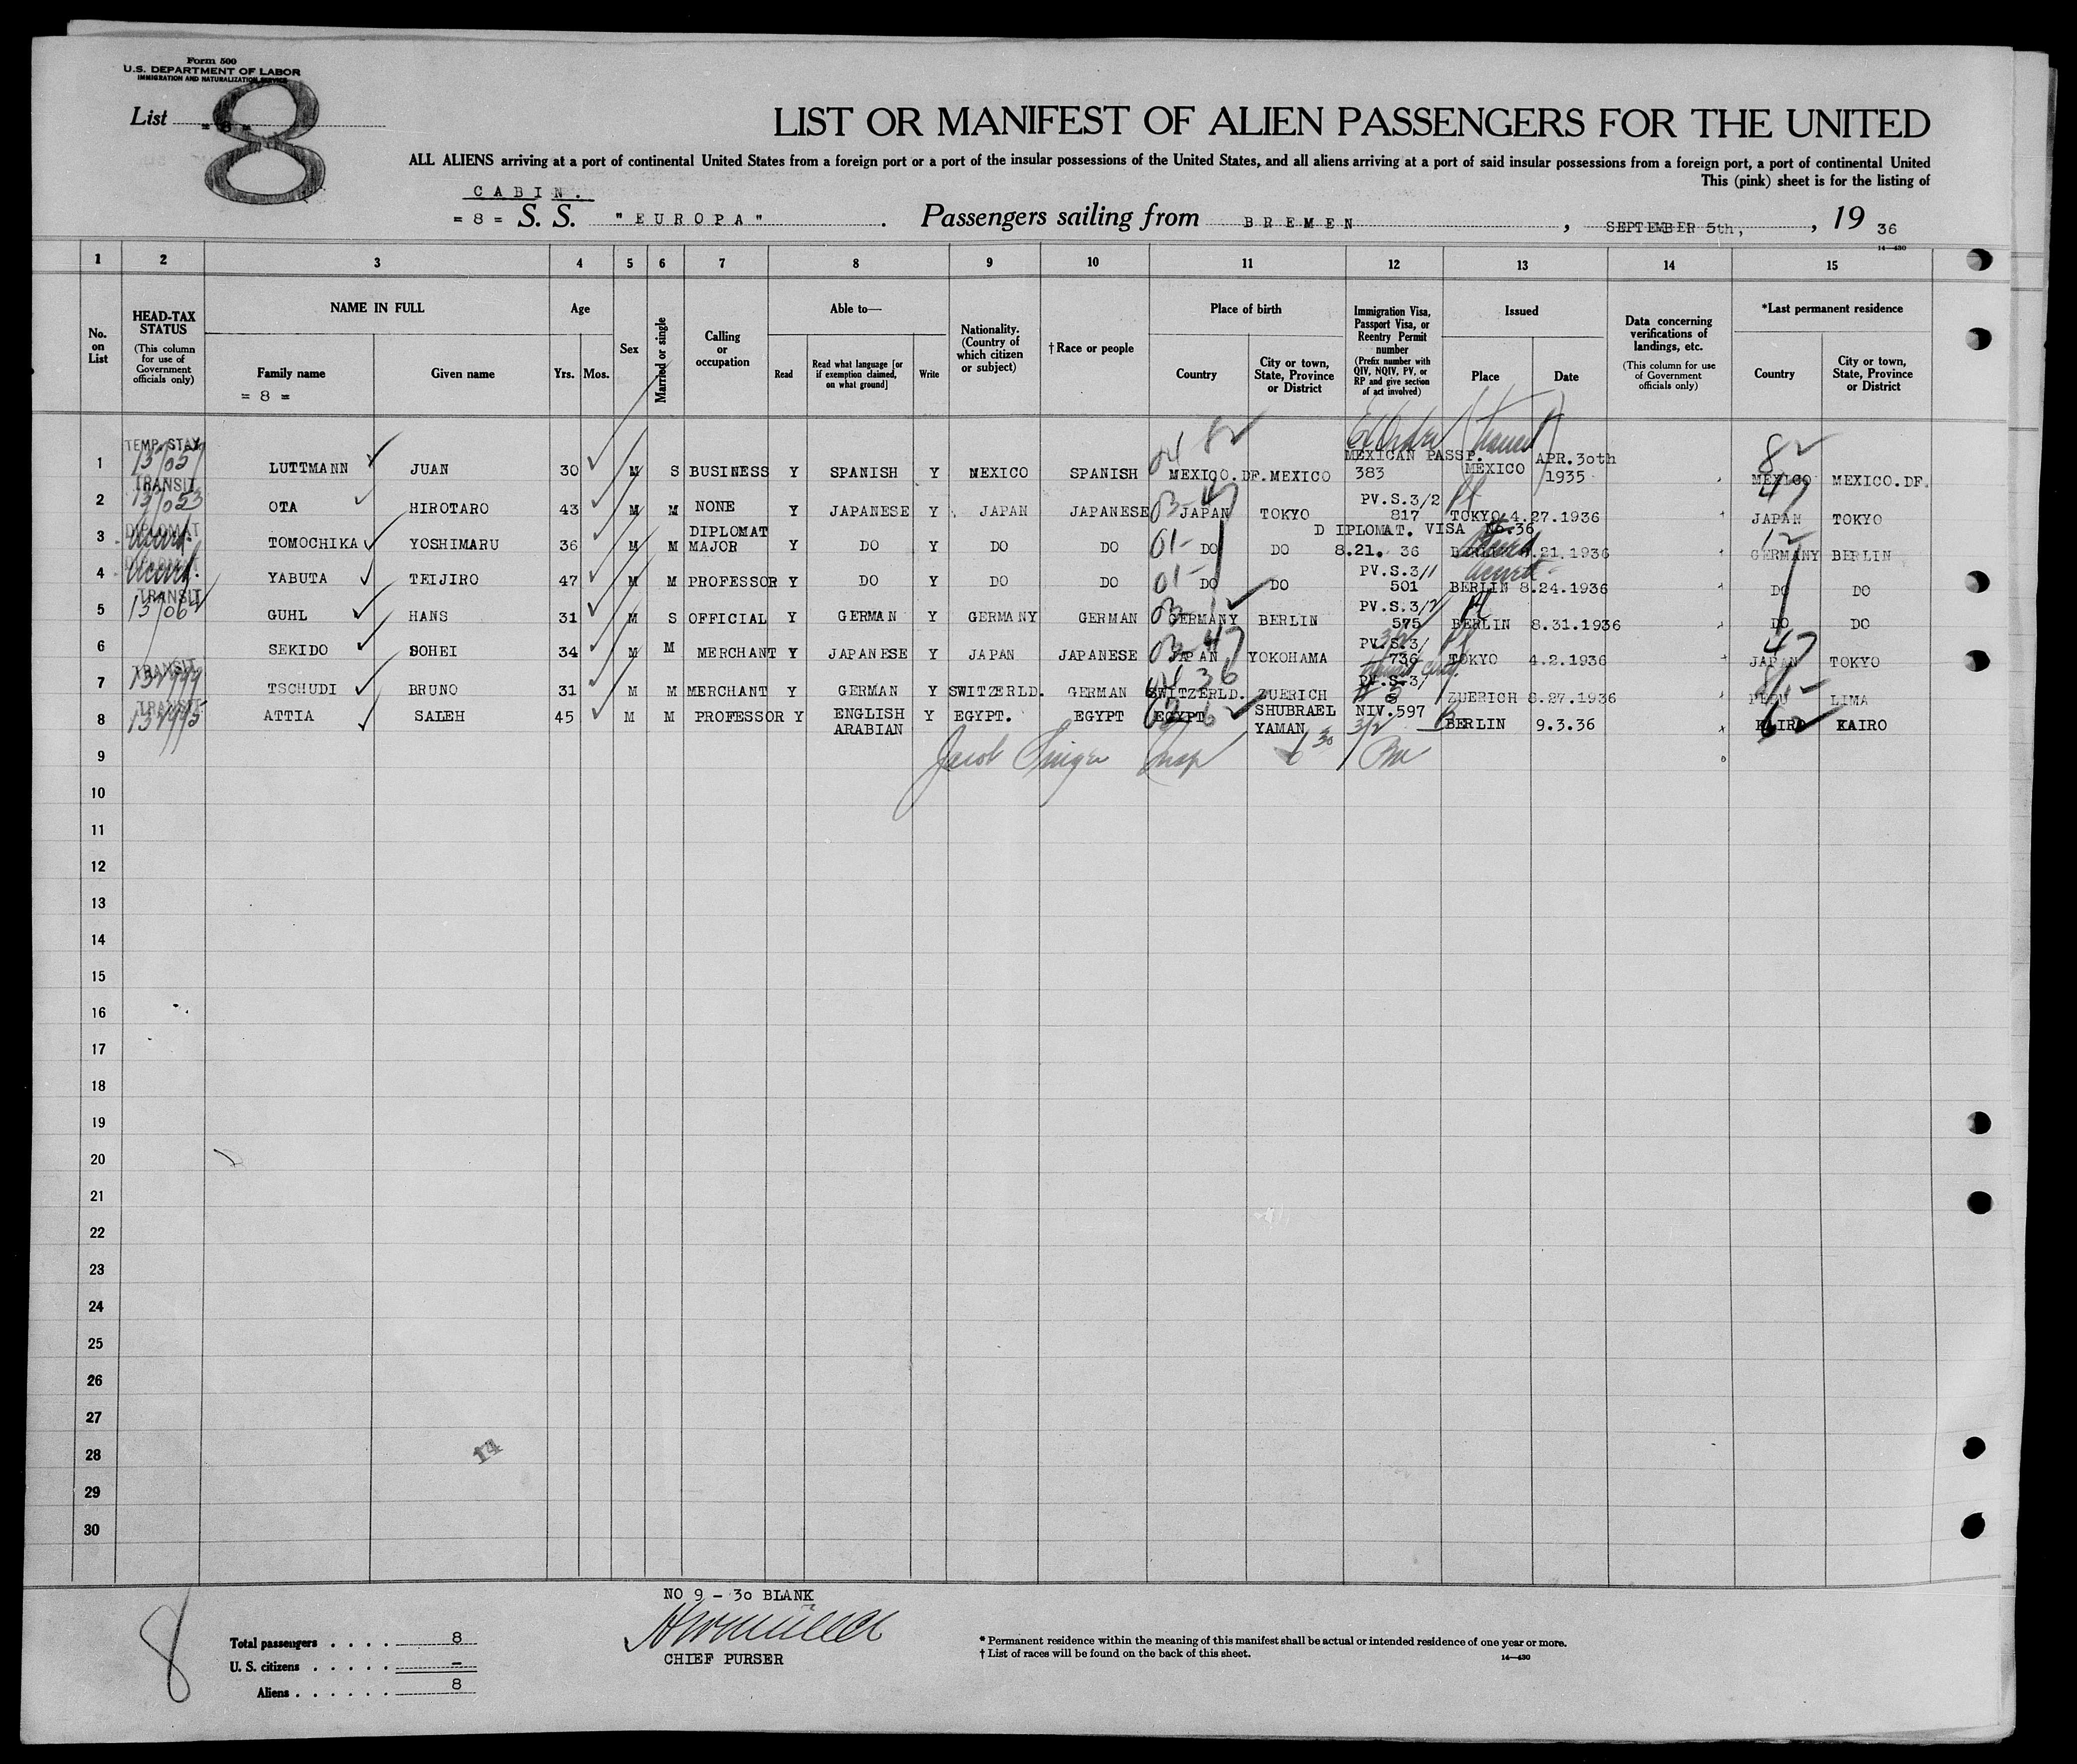 Form 500
U.S. DEPARTMENT OF LABOR
IMMIGRATION AND NATURALIZATION SERVICE
List = 8 =
8
LIST OR MANIFEST OF ALIEN PASSENGERS FOR THE UNITED
ALL ALIENS arriving at a port of continental United States from a foreign port or a port of the insular possessions of the United States, and all aliens arriving at a port of said insular possessions from a foreign port, a port of continental United
This (pink) sheet is for the listing of
CABIN.
= 8 = S. S. "EUROPA" . Passengers sailing from BREMEN , SEPTEMBER 5th, , 19 36
14—430
1 2 3 4 5 6 7 8 9 10 11 12 13 14 15
No. on List
HEAD-TAX STATUS (This column for use of Government officials only)
NAME IN FULL
Family name
Given name
= 8 =
Age
Yrs. Mos.
Sex
Married or single
Calling or occupation
Able to—
Read
Read what language [or if exemption claimed, on what ground]
Write
Nationality. (Country of which citizen or subject)
† Race or people
Place of birth
Country
City or town, State, Province or District
Immigration Visa, Passport Visa, or Reentry Permit number (Prefix number with QIV, NQIV, PV, or RP and give section of act involved)
Issued
Place
Date
Data concerning verifications of landings, etc. (This column for use of Government officials only)
*Last permanent residence
Country
City or town, State, Province or District
1 TEMP. STAY LUTTMANN JUAN 30 M S BUSINESS Y SPANISH Y MEXICO SPANISH 04 82 MEXICO.DF.MEXICO MEXICAN PASSP. 383 MEXICO APR.30th 1935 82 MEXICO MEXICO.DF.
2 TRANSIT 13/053 OTA HIROTARO 43 M M NONE Y JAPANESE Y JAPAN JAPANESE 03-47 JAPAN TOKYO PV.S.3/2 817 TOKYO 4.27.1936 47 JAPAN TOKYO
3 DIPLOMAT TOMOCHIKA YOSHIMARU 36 M M DIPLOMAT MAJOR Y DO Y DO DO 01- DO DO DIPLOMAT. VISA No.36 8.21. 36 8.21.1936 12 GERMANY BERLIN
4 YABUTA TEIJIRO 47 M M PROFESSOR Y DO Y DO DO 01- DO DO PV.S.3/1 501 BERLIN 8.24.1936 DO DO
5 TRANSIT 13/064 GUHL HANS 31 M S OFFICIAL Y GERMAN Y GERMANY GERMAN GERMANY BERLIN PV.S.3/2 575 BERLIN 8.31.1936 DO DO
6 SEKIDO SOHEI 34 M M MERCHANT Y JAPANESE Y JAPAN JAPANESE 03-47 JAPAN YOKOHAMA PV.S.3/ 736 TOKYO 4.2.1936 47 JAPAN TOKYO
7 TRANSIT TSCHUDI BRUNO 31 M M MERCHANT Y GERMAN Y SWITZERLD. GERMAN 04 36 SWITZERLD. ZUERICH PV.S.3/ ZUERICH 8.27.1936 PERU LIMA
8 TRANSIT ATTIA SALEH 45 M M PROFESSOR Y ENGLISH ARABIAN Y EGYPT. EGYPT EGYPT SHUBRAEL YAMAN NIV.597 3/2 BERLIN 9.3.36 KAIRO KAIRO
9 Jacob Singer Insp
10
11
12
13
14
15
16
17
18
19
20
21
22
23
24
25
26
27
28
29
30
14
NO 9 - 30 BLANK
CHIEF PURSER
8
Total passengers . . . . 8
U. S. citizens . . . . . —
Aliens . . . . . . 8
* Permanent residence within the meaning of this manifest shall be actual or intended residence of one year or more.
† List of races will be found on the back of this sheet.
14—430